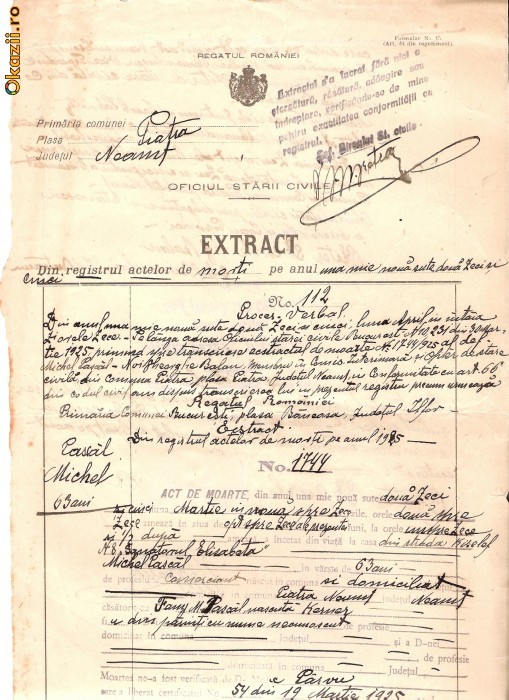 Okazii.ro
Formular No. 15.
(Art. 81 din regulament).
REGATUL ROMÂNIEI
Extractul s'a lucrat fără nici o
ștersătură, răsătură, adăugire sau
îndreptare, verificându-se de mine
pentru exactitatea conformității cu
registrul.
Primăria comunei Piatra
Plasa
Județul Neamț
Șef. Biroului St. civile
OFICIUL STĂRII CIVILE
EXTRACT
Din registrul actelor de morți pe anul una mie nouă sute două zeci și
cinci
No. 112
Proces-Verbal
Din anul una mie nouă sute două zeci și cinci, luna April, în întăia
zi orele zece. Pe lângă adresa Oficiului stărei civile București N 10,231 din 30 Mar-
tie 1925 primind spre transcriere extractul de moarte N 1744/925 al def.
Michel Pascal - Noi Gheorghe Balan, membru în Comis. Interimară și ofițer de stare
civilă din Comuna Piatra, plasa Piatra Județul Neamț, în conformitate cu art. 66
din codul civil am dispus transcrierea lui în prezentul registru precum urmează
Regatul României
Primăria Comunei București, plasa Băneasa, Județul Ilfov
Extract
Din registrul actelor de morți pe anul 1925 -
No. 1744
Pascal
Michel
63 ani
ACT DE MOARTE, din anul una mie nouă sute două zeci
și cinci Martie în nouă spre zece orele două spre
zece
opt spre zece de prezentei la orele unspre zece
și 1/2 după a încetat din viață la casa din strada Kiselef
N Sanatoriul Elisabeta
Michel Pascal în vârstă de 63 ani
de profesie Comerciant născut în comuna și domiciliat
Piatra Neamț Neamț
căsătorit cu Fany M. Pascal născută
a dras. părinți cu nume necunoscut de profesie
domiciliat în comuna Județul și a D-nei
de profesie
domiciliată în comuna Județul
Moartea ne-a fost verificată de
care a liberat certificatul No. 54 din 19 Martie 1925